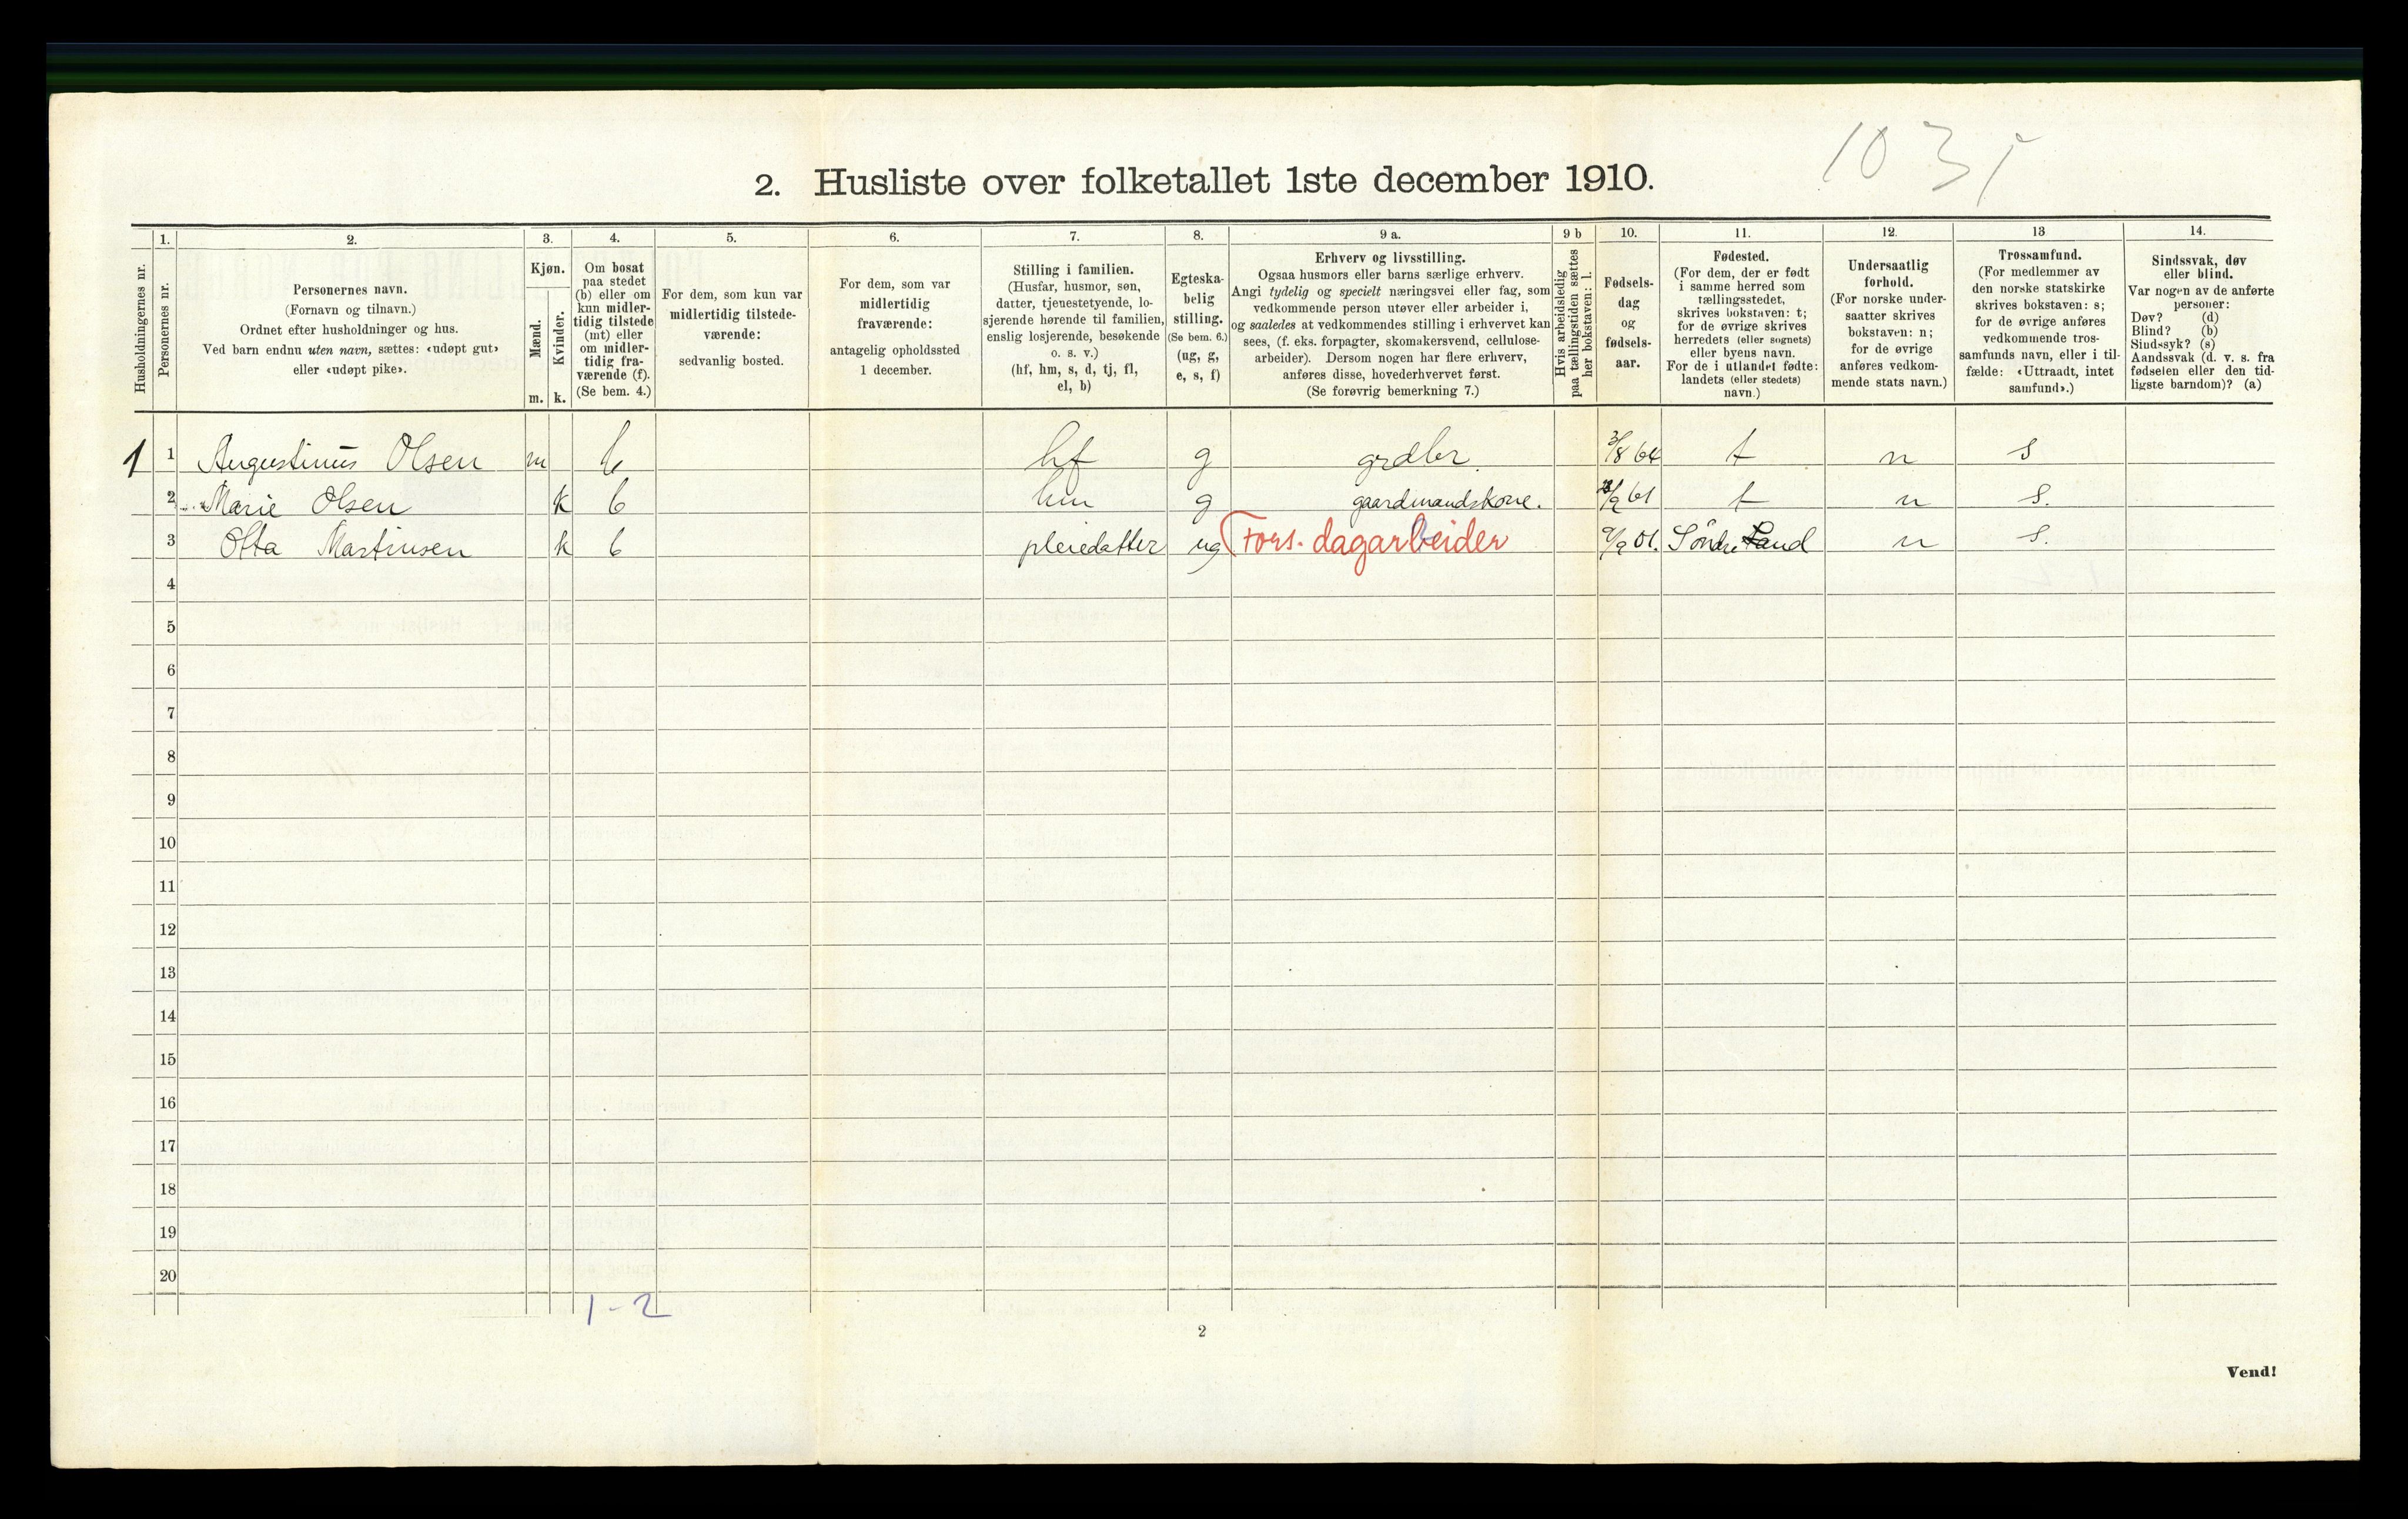 2. Husliste over folketallet 1ste december 1910.
Husholdningernes nr.
1.
Personernes nr.
2.
Personernes navn.
(Fornavn og tilnavn.)
Ordnet efter husholdninger og hus.
Ved barn endnu uten navn, sættes: «udøpt gut»
eller «udøpt pike».
3.
Kjøn.
Mænd.
Kvinder.
m. k.
4.
Om bosat
paa stedet
(b) eller om
kun midler-
tidig tilstede
(mt) eller
om midler-
tidig fra-
værende (f).
(Se bem. 4.)
5.
For dem, som kun var
midlertidig tilstede-
værende:
sedvanlig bosted.
6.
For dem, som var
midlertidig
fraværende:
antagelig opholdssted
1 december.
7.
Stilling i familien.
(Husfar, husmor, søn,
datter, tjenestetyende, lo-
sjerende hørende til familien,
enslig losjerende, besøkende
o. s. v.)
(hf, hm, s, d, tj, fl,
el, b)
8.
Egteska-
belig
stilling.
(Se bem. 6.)
(ug, g,
e, s, f)
9 a.
Erhverv og livsstilling.
Ogsaa husmors eller barns særlige erhverv.
Angi tydelig og specielt næringsvei eller fag, som
vedkommende person utøver eller arbeider i,
og saaledes at vedkommendes stilling i erhvervet kan
sees, (f. eks. forpagter, skomakersvend, cellulose-
arbeider). Dersom nogen har flere erhverv,
anføres disse, hovederhvervet først.
(Se forøvrig bemerkning 7.)
9 b
Hvis arbeidsledig
paa tællingstiden sættes
her bokstaven: l.
10.
Fødsels-
dag
og
fødsels-
aar.
11.
Fødested.
(For dem, der er født
i samme herred som
tællingsstedet,
skrives bokstaven: t;
for de øvrige skrives
herredets (eller sognets)
eller byens navn.
For de i utlandet fødte:
landets (eller stedets)
navn.)
12.
Undersaatlig
forhold.
(For norske under-
saatter skrives
bokstaven: n;
for de øvrige
anføres vedkom-
mende stats navn.)
13
Trossamfund.
(For medlemmer av
den norske statskirke
skrives bokstaven: s;
for de øvrige anføres
vedkommende tros-
samfunds navn, eller i til-
fælde: «Uttraadt, intet
samfund».)
14.
Sindssvak, døv
eller blind.
Var nogen av de anførte
personer:
Døv? (d)
Blind? (b)
Sindssyk? (s)
Aandssvak (d. v. s. fra
fødselen eller den tid-
ligste barndom)? (a)
1 1 Augustinus Olsen m b hf g grdbr. 3/8 64 t n s
2 Marie Olsen k b hm g gaardmandskone. /9 61 t n s.
3 Otta Martinsen k b pleiedatter ug Fors. dagarbeider /9 01. Søndre Land n s.
4
5
6
7
8
9
10
11
12
13
14
15
16
17
18
19
20
1-2
2
Vend!